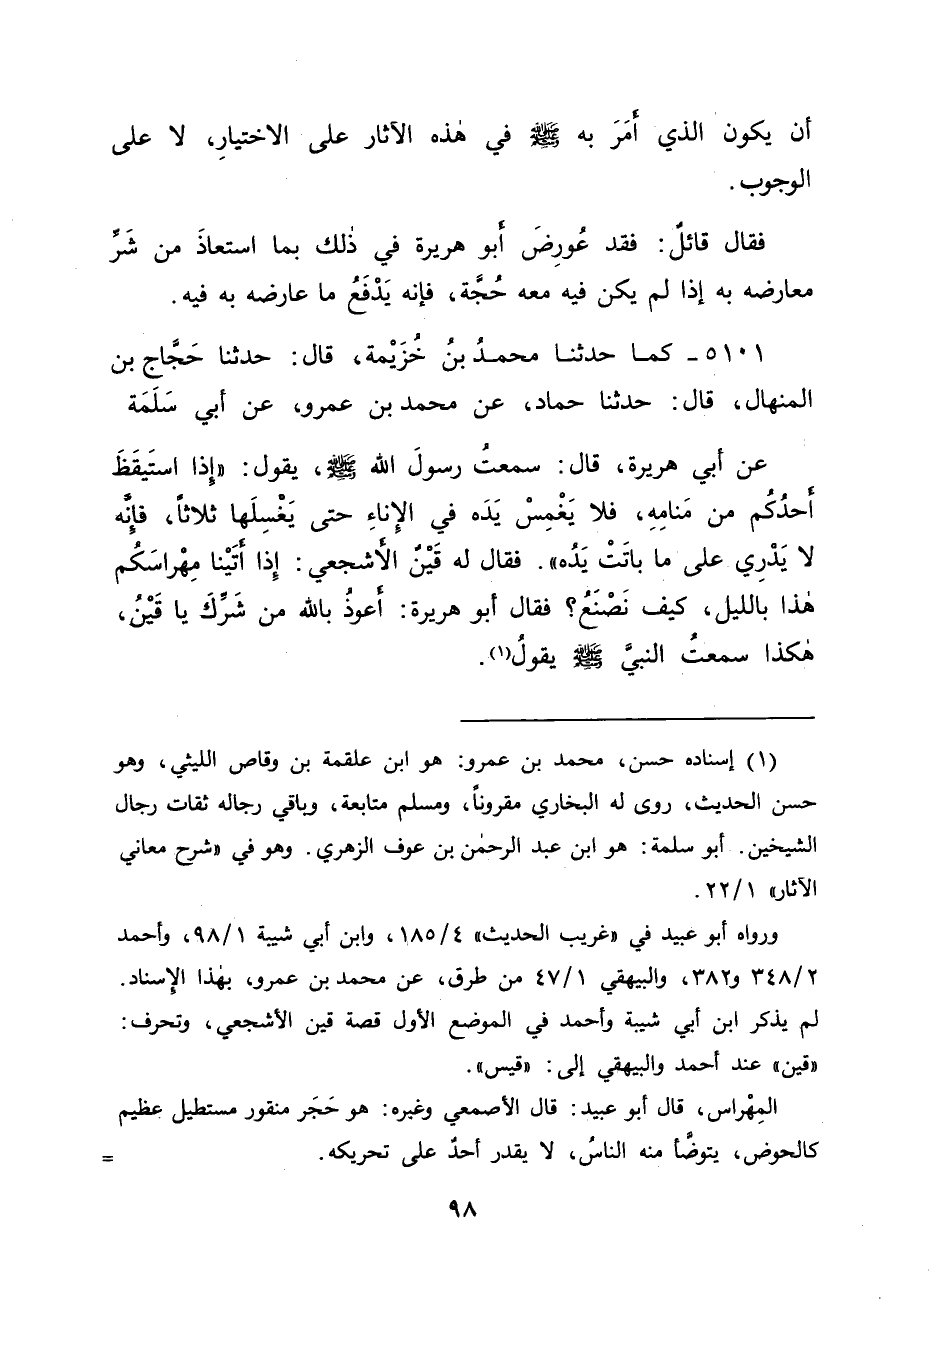 أن يكون الذي أَمَرَ به ﷺ في هٰذه الآثار على الاختيارِ، لا على
الوجوب.
فقال قائلٌ: فقد عُورِضَ أَبو هريرة في ذٰلك بما استعاذَ من شَرِّ
معارضه به إذا لم يكن فيه معه حُجَّة، فإنه يَدْفَعُ ما عارضه به فيه.
٥١٠١ـ كما حدثنا محمدُ بنُ خُزَيْمة، قال: حدثنا حَجَّاج بن
المنهال، قال: حدثنا حماد، عن محمد بن عمرو، عن أبي سَلَمَة
عن أبي هريرة، قال: سمعتُ رسولَ الله ﷺ، يقول: «إذا استَيقَظَ
أَحدُكُم من مَنامِهِ، فلا يَغْمِسْ يَدَه في الإناءِ حتى يَغْسِلَها ثلاثاً، فإنَّه
لا يَدْرِي على ما باتَتْ يَدُه». فقال له قَيْنٌ الأَشجعي: إذا أَتَيْنا مِهْراسَكُم
هٰذا بالليل، كيف نَصْنَعُ؟ فقال أبو هريرة: أَعوذُ بالله من شَرِّكَ يا قَيْنُ،
هٰكذا سمعتُ النبيَّ ﷺ يقولُ(١).
(١) إسناده حسن، محمد بن عمرو: هو ابن علقمة بن وقاص الليثي، وهو
حسن الحديث، روى له البخاري مقروناً، ومسلم متابعة، وباقي رجاله ثقات رجال
الشيخين. أبو سلمة: هو ابن عبد الرحمٰن بن عوف الزهري. وهو في «شرح معاني
الآثار» ٢٢/١.
ورواه أبو عبيد في «غريب الحديث» ١٨٥/٤، وابن أبي شيبة ٩٨/١، وأحمد
٣٤٨/٢ و٣٨٢، والبيهقي ٤٧/١ من طرق، عن محمد بن عمرو، بهٰذا الإسناد.
لم يذكر ابن أبي شيبة وأحمد في الموضع الأول قصة قين الأشجعي، وتحرف:
«قين» عند أحمد والبيهقي إلى: «قيس».
المِهْراس، قال أبو عبيد: قال الأصمعي وغيره: هو حَجَر منقور مستطيل عظيم
كالحوض، يتوضَّأ منه الناسُ، لا يقدر أحدٌ على تحريكه. =
٩٨